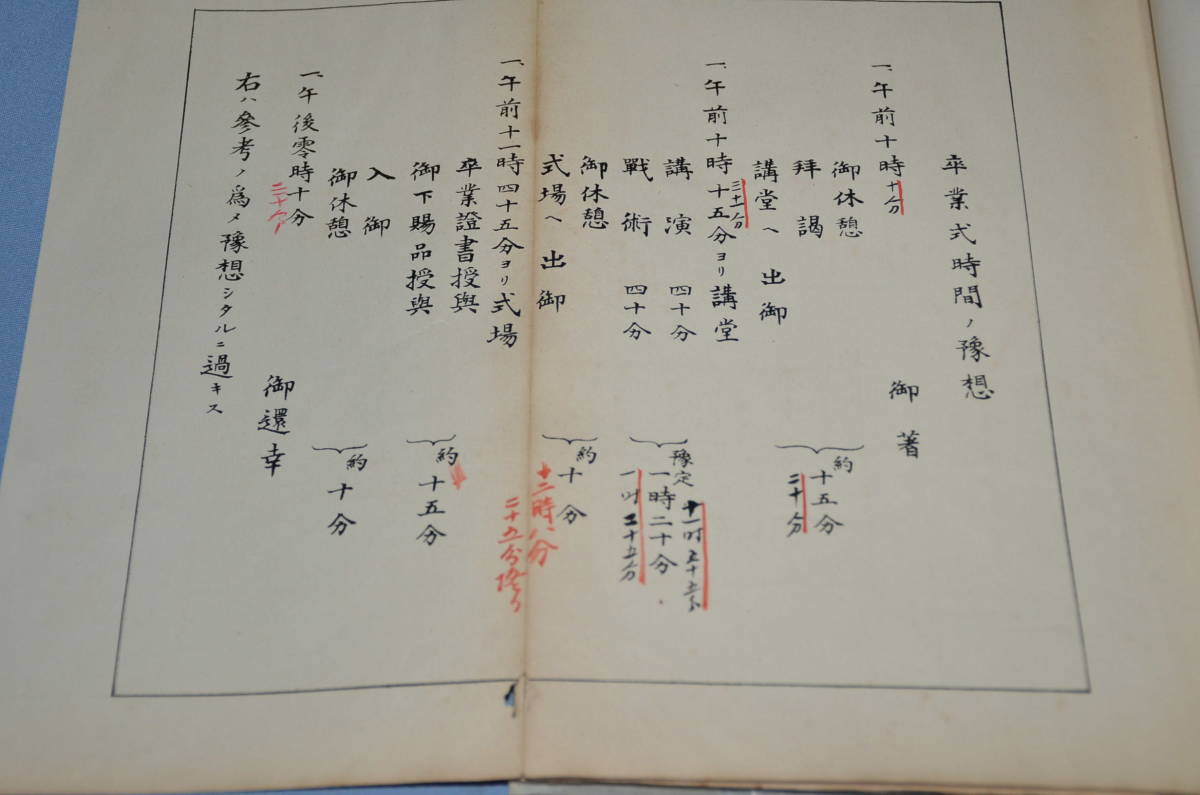 卒業式時間ノ豫想
一、午前十時
十分
御著
御休憩
拜謁
講堂へ出御
約十五分
二十分
一、午前十時十五分ヨリ講堂
講演 四十分
戰術 四十分
豫定
一時二十分
御休憩
式場へ出御
約十分
十二時八分
一、午前十一時四十五分ヨリ式場
卒業證書授與
御下賜品授與
約十五分
入御
御休憩
約十分
一、午後零時十分
御還幸
右ハ參考ノ爲メ豫想シタルニ過キス